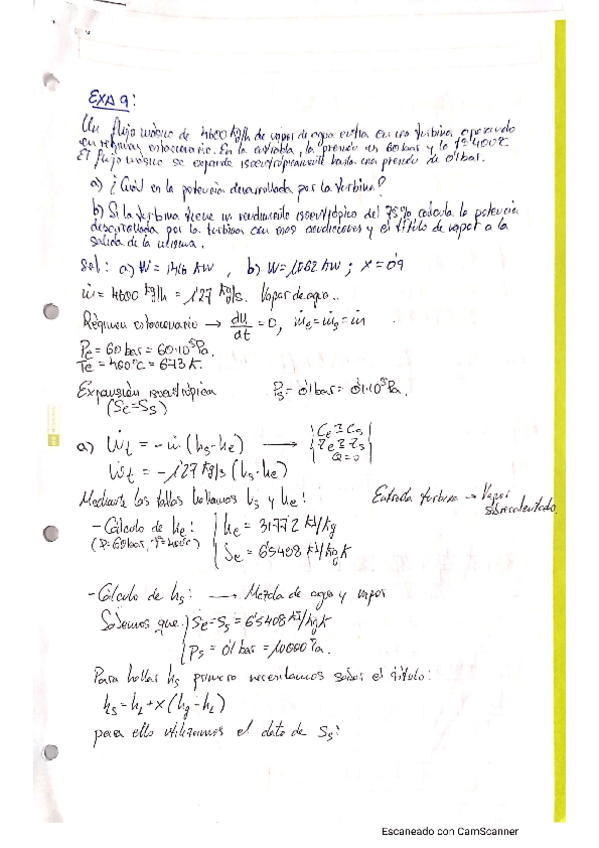 EXA 9:
Un flujo másico de 4600 kg/h de vapor de agua entra en una turbina operando
en régimen estacionario. En la entrada, la presión es 60 bar y la Tª 400°C
El flujo másico se expande isoentrópicamente hasta una presión de 0'1 bar.
a) ¿Cuál es la potencia desarrollada por la turbina?
b) Si la turbina tiene un rendimiento isoentrópico del 75% calcula la potencia
desarrollada por la turbina con esas condiciones y el título de vapor a la
salida de la misma.
Sol: a) Ẇ = 1416 kW , b) W = 1062 kW ; x = 0'9
ṁ = 4600 kg/h = 1'27 kg/s. Vapor de agua..
Régimen estacionario → du/dt = 0, ṁe = ṁs = ṁ
Pe = 60 bar = 60·10⁵ Pa.
Te = 400°C = 673 K.
Expansión isoentrópica Ps = 0'1 bar = 0'1·10⁵ Pa.
(Se = Ss)
a) Ẇt = -ṁ (hs - he) → | Ce ≅ Cs | Ze ≅ Zs | Q = 0 |
Ẇt = -1'27 kg/s (hs - he)
Mediante las tablas hallamos hs y he: Entrada turbina → Vapor
sobrecalentado.
- Cálculo de he: he = 3177'2 kJ/kg
(P=60bar, Tª=400°C) Se = 6'5408 kJ/kgK
- Cálculo de hs: → Mezcla de agua y vapor
Sabemos que: Se = Ss = 6'5408 kJ/kgK
Ps = 0'1 bar = 10000 Pa.
Para hallar hs primero necesitamos saber el título:
hs = hL + x (hg - hL)
para ello utilizamos el dato de Ss:
Escaneado con CamScanner